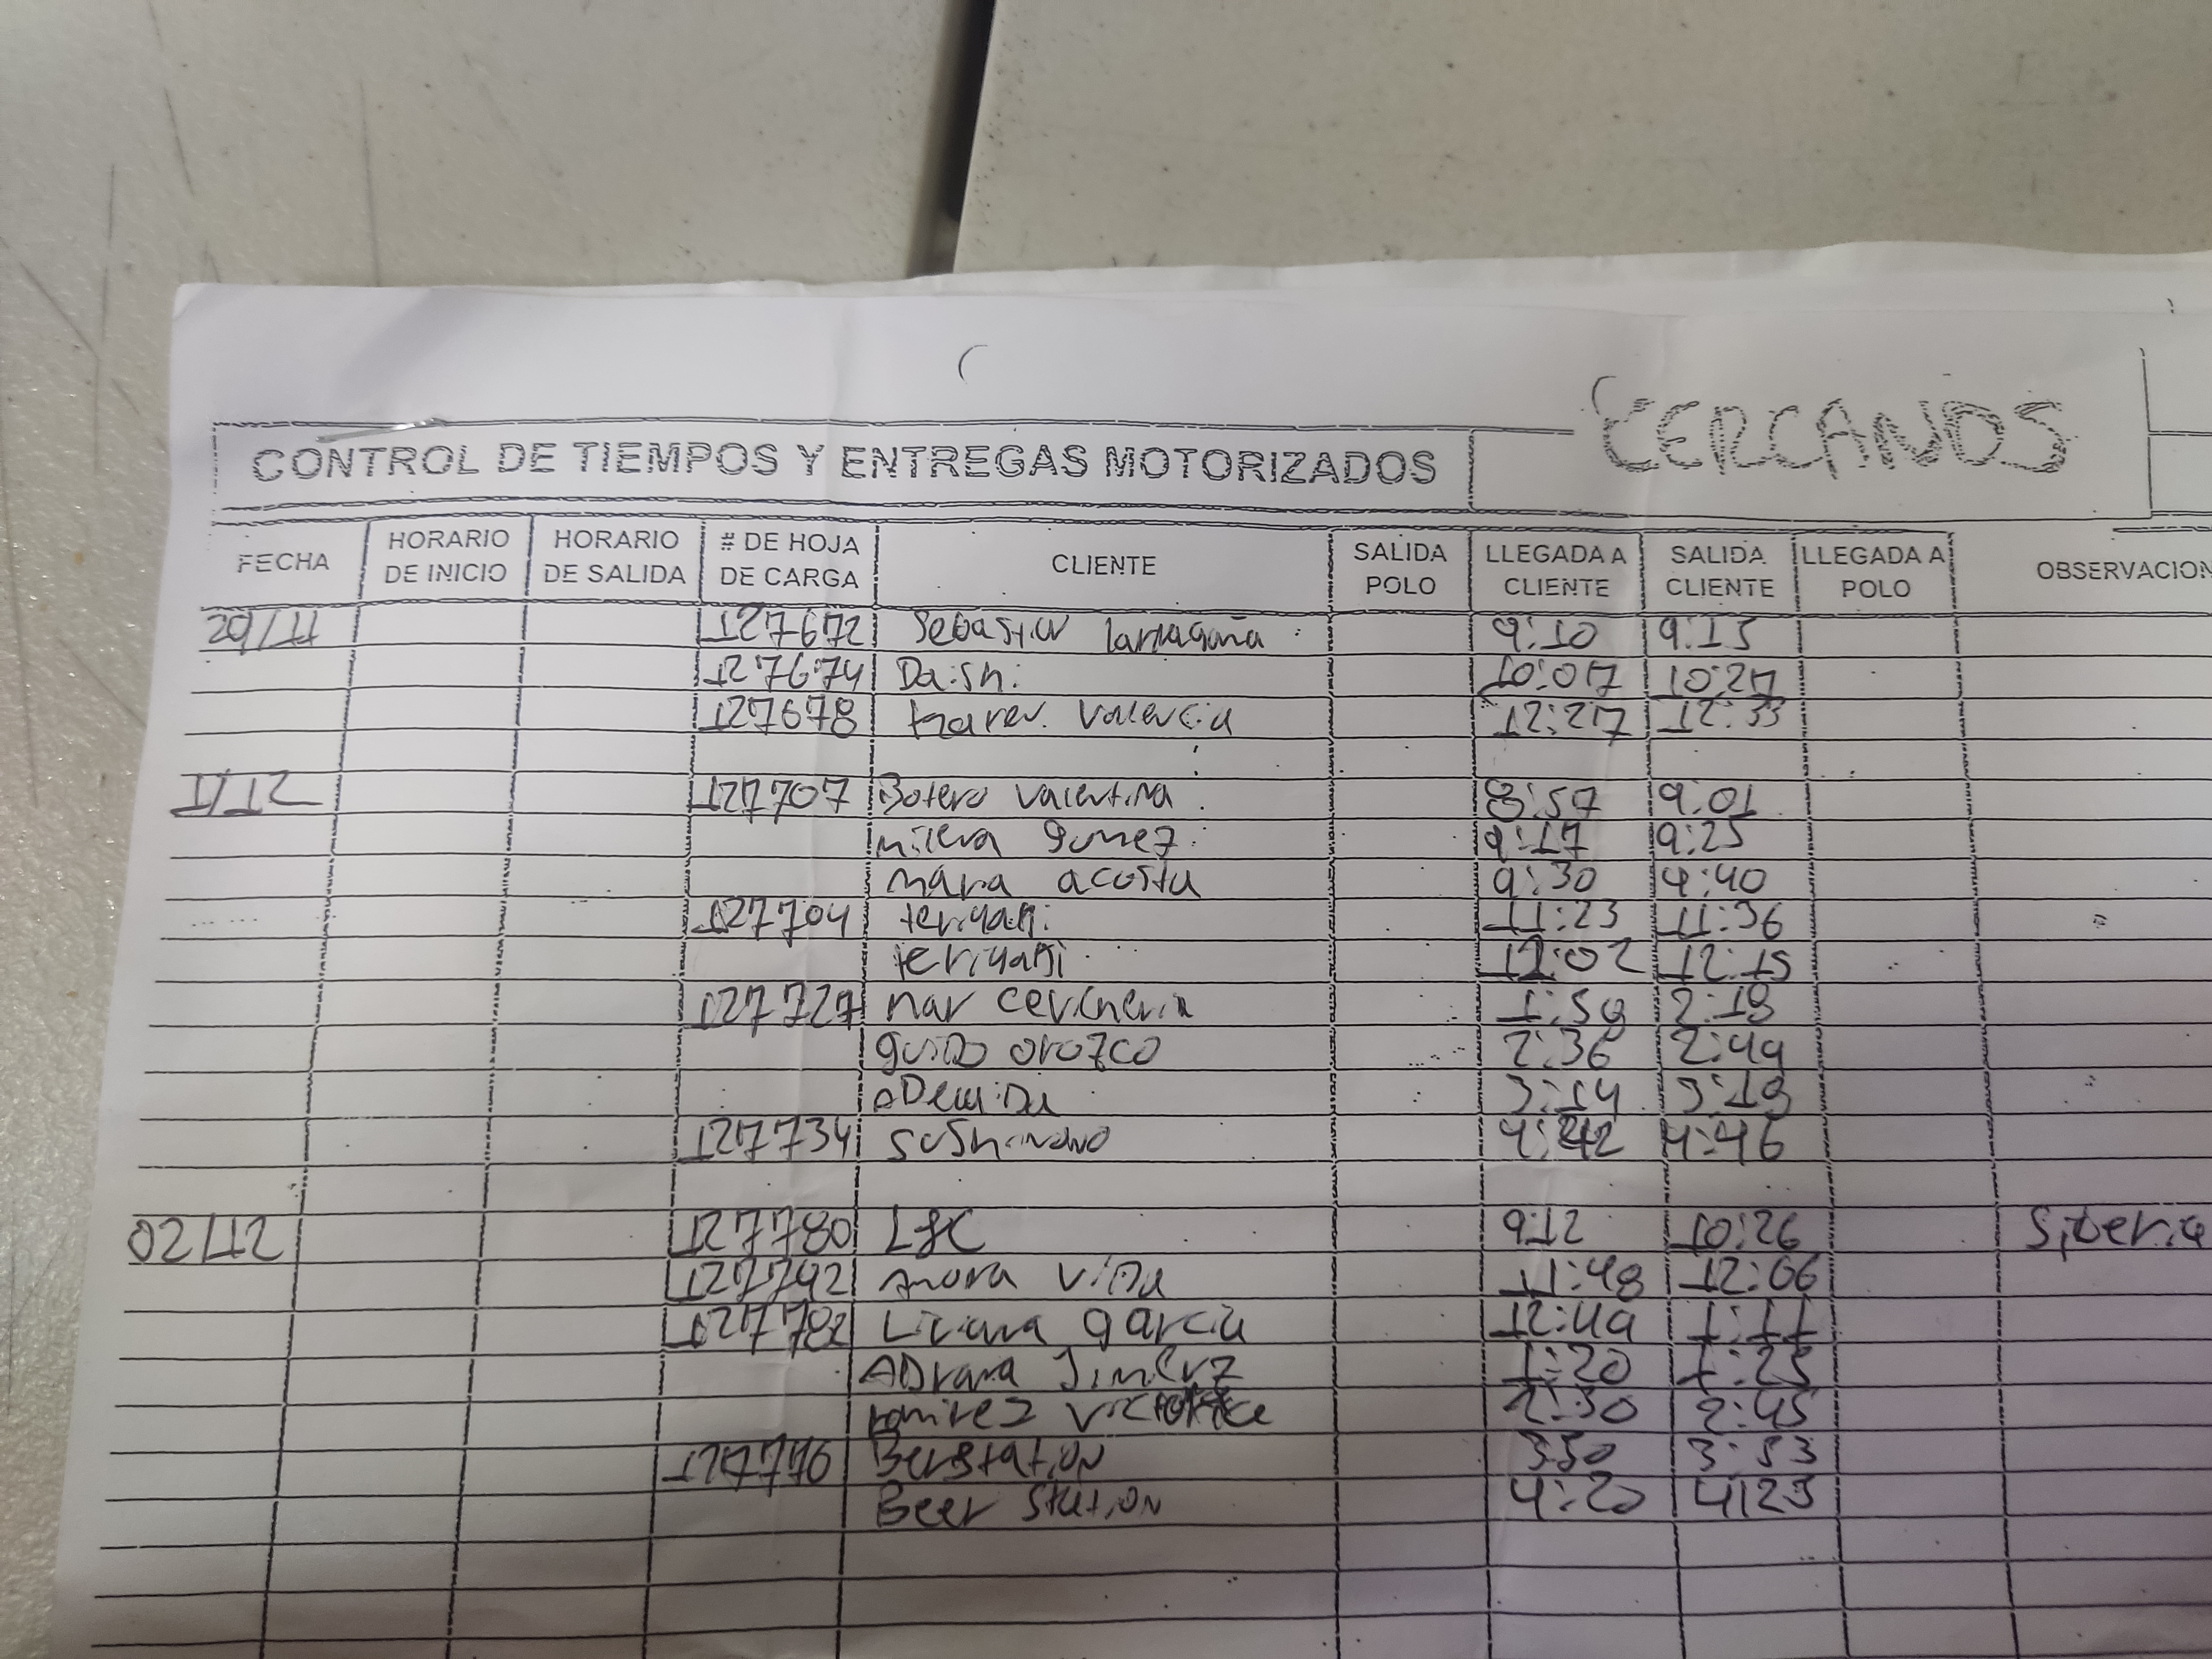 CERCANOS
CONTROL DE TIEMPOS Y ENTREGAS MOTORIZADOS
FECHA HORARIO DE INICIO HORARIO DE SALIDA # DE HOJA DE CARGA CLIENTE SALIDA POLO LLEGADA A CLIENTE SALIDA CLIENTE LLEGADA A POLO OBSERVACION
29/11 127672 Sebastian larragaña 9:10 9:13
127674 Daishi 10:07 10:27
127678 Karen Valencia 12:27 12:33
1/12 127707 Botero Valentina 8:57 9:01
milena gomez 9:17 9:25
maria acosta 9:30 9:40
127704 teriyaki 11:23 11:36
teriyaki 12:02 12:15
127727 mar cevicheria 1:59 2:19
guido orozco 2:36 2:49
3:14 3:19
127734 4:42 4:46
02/12 127780 L&C 9:12 10:26 Siberia
127792 vida 11:48 12:06
127782 Liliana garcia 12:49 1:11
ADriana Jimenez 1:20 1:25
ramirez 2:30 2:45
127776 Berstation 3:50 3:53
Beer station 4:20 4:23